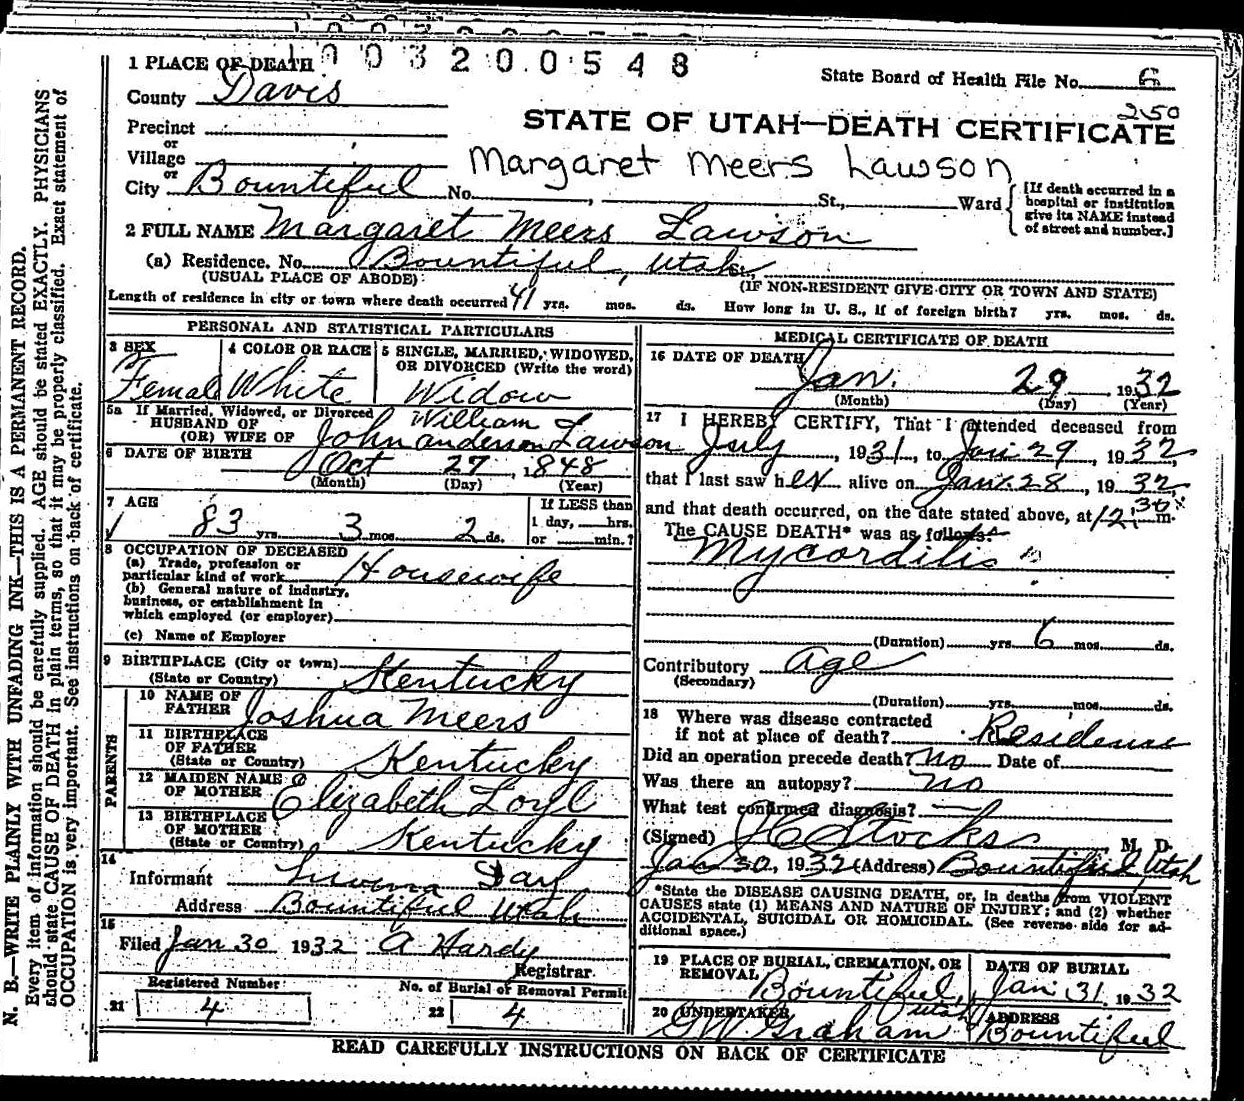 1003200548
1 PLACE OF DEATH
State Board of Health File No. 6
County Davis
250
STATE OF UTAH—DEATH CERTIFICATE
Precinct
or
Village
Margaret Meers Lawson
or
City Bountiful No. , St., Ward
[If death occurred in a hospital or institution give its NAME instead of street and number.]
2 FULL NAME Margaret Meers Lawson
(a) Residence. No. Bountiful, Utah St.,
(USUAL PLACE OF ABODE) (IF NON-RESIDENT GIVE CITY OR TOWN AND STATE)
Length of residence in city or town where death occurred 41 yrs. mos. ds. How long in U. S., if of foreign birth? yrs. mos. ds.
PERSONAL AND STATISTICAL PARTICULARS
3 SEX
Female
4 COLOR OR RACE
White
5 SINGLE, MARRIED, WIDOWED, OR DIVORCED (Write the word)
Widow
5a If Married, Widowed, or Divorced
HUSBAND OF
(OR) WIFE OF John William anderson Lawson
6 DATE OF BIRTH
Oct 27, 1848
(Month) (Day) (Year)
7 AGE
83 yrs. 3 mos. 2 ds.
If LESS than
1 day, hrs.
or min.?
8 OCCUPATION OF DECEASED
(a) Trade, profession or
particular kind of work Housewife
(b) General nature of industry,
business, or establishment in
which employed (or employer)
(c) Name of Employer
9 BIRTHPLACE (City or town)
(State or Country) Kentucky
PARENTS
10 NAME OF
FATHER Joshua Meers
11 BIRTHPLACE
OF FATHER
(State or Country) Kentucky
12 MAIDEN NAME
OF MOTHER Elizabeth
13 BIRTHPLACE
OF MOTHER
(State or Country) Kentucky
14
Informant Day
Address Bountiful Utah
15
Filed Jan 30 1932 A Hardy
Registrar.
Registered Number
21 4
No. of Burial or Removal Permit
22 4
MEDICAL CERTIFICATE OF DEATH
16 DATE OF DEATH
Jan. 29, 1932
(Month) (Day) (Year)
17 I HEREBY CERTIFY, That I attended deceased from
July, 1931, to Jan 29, 1932,
that I last saw her alive on Jan. 28, 1932,
and that death occurred, on the date stated above, at 12:30 m.
The CAUSE DEATH* was as follows:
Mycorditis
(Duration) yrs. 6 mos. ds.
Contributory Age
(Secondary)
(Duration) yrs. mos. ds.
18 Where was disease contracted
if not at place of death? Residence
Did an operation precede death? No Date of
Was there an autopsy? no
What test confirmed diagnosis?
(Signed) Stocks M. D.
Jan 30, 1932 (Address) Bountiful, Utah
*State the DISEASE CAUSING DEATH, or, in deaths from VIOLENT
CAUSES state (1) MEANS AND NATURE OF INJURY; and (2) whether
ACCIDENTAL, SUICIDAL OR HOMICIDAL. (See reverse side for ad-
ditional space.)
19 PLACE OF BURIAL, CREMATION, OR
REMOVAL
Bountiful, Utah
DATE OF BURIAL
Jan 31, 1932
20 UNDERTAKER
GW Graham
ADDRESS
Bountiful
READ CAREFULLY INSTRUCTIONS ON BACK OF CERTIFICATE
N. B.—WRITE PLAINLY WITH UNFADING INK—THIS IS A PERMANENT RECORD.
Every item of information should be carefully supplied. AGE should be stated EXACTLY. PHYSICIANS
should state CAUSE OF DEATH in plain terms, so that it may be properly classified. Exact statement of
OCCUPATION is very important. See instructions on back of certificate.